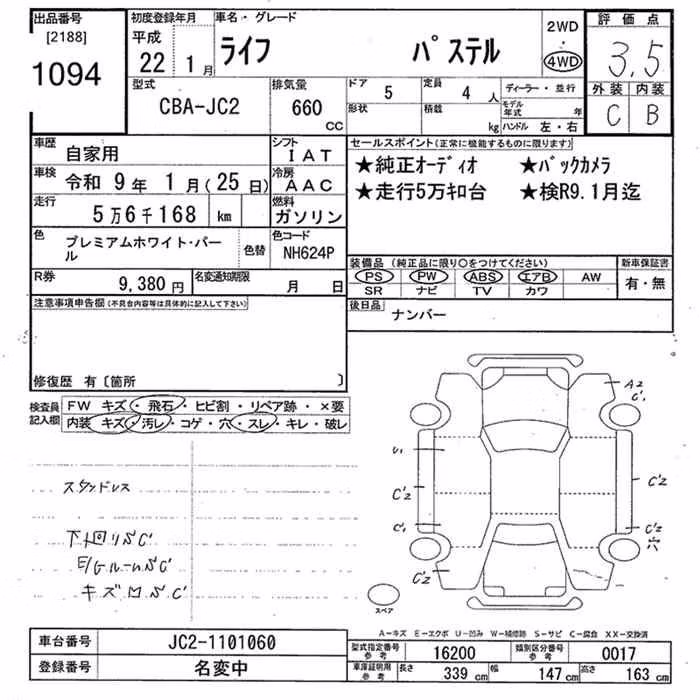 出品番号 [2188] 1094
初度登録年月 平成 22 1月
車名・グレード ライフ パステル
2WD ・ 4WD
評価点 3.5
外装 内装
C B
型式 CBA-JC2
排気量 660 CC
ドア 5 定員 4 人
形状 積載 kg
ディーラー・並行
モデル年式 年
ハンドル 左・右
車歴 自家用
シフト IAT
車検 令和 9年 1月(25日)
冷房 AAC
走行 5万6千168 km
燃料 ガソリン
色 プレミアムホワイト・パール
色替
色コード NH624P
R券 9,380円
名変通知期限 月 日
セールスポイント(正常に機能するものに限ります)
★純正オーディオ ★バックカメラ
★走行5万キロ台 ★検R9.1月迄
装備品 (純正品に限り○をつけてください)
PS PW ABS エアB AW
SR ナビ TV カワ
新車保証書
有・無
後日品 ナンバー
注意事項申告欄(不具合内容等は具体的に記入して下さい)
修復歴 有〔箇所 〕
検査員記入欄
FW キズ・飛石・ヒビ割・リペア跡・×要
内装 キズ・汚レ・コゲ・穴・スレ・キレ・破レ
スタッドレス
下回リSC'
E/GルームSC'
A2
C'1
U1
C'2
C'2
C'1
C'2
穴
C'2
スペア
A−キズ E−エクボ U−凹み W−補修跡 S−サビ C−腐食 XX−交換済
車台番号 JC2-1101060
登録番号 名変中
型式指定番号 参考 16200
類別区分番号 参考 0017
車庫証明用 参考 長さ 339 cm 幅 147 cm 高さ 163 cm